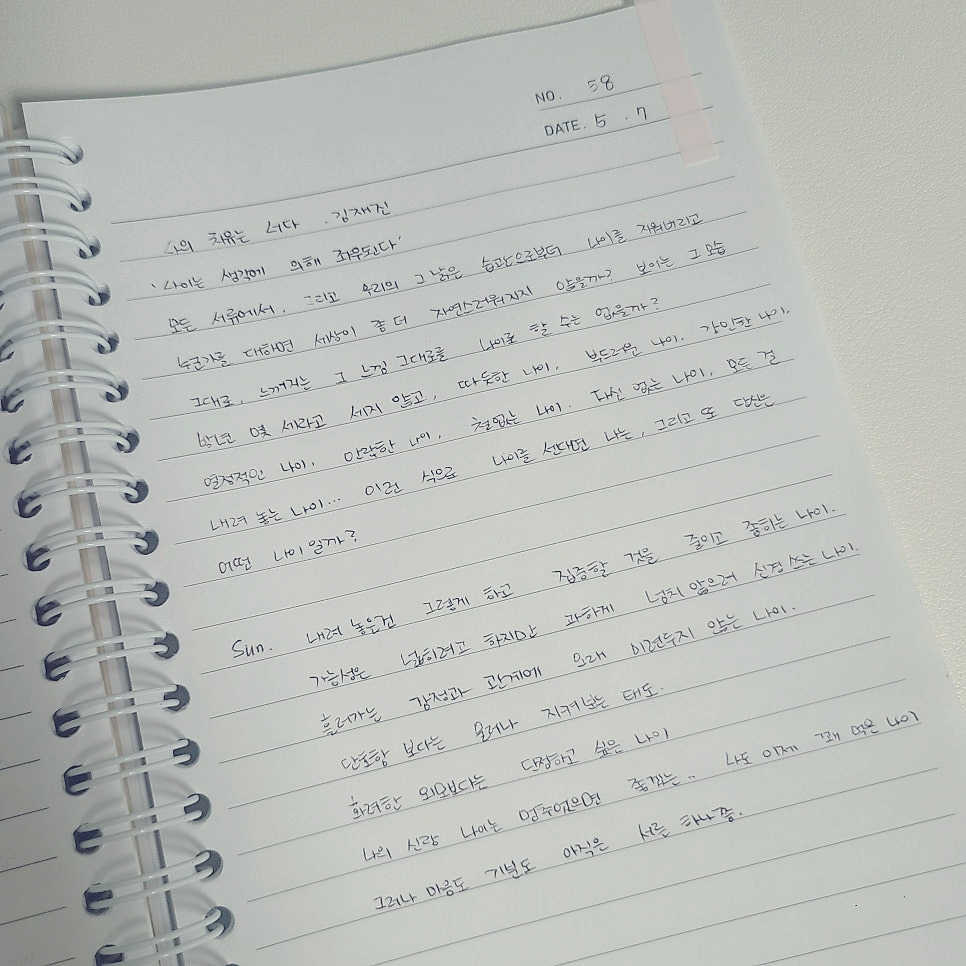 NO. 58
DATE. 5 . 7
나의 치유는 너다 . 김재진
'나이는 생각에 의해 좌우된다'
모든 서류에서, 그리고 우리의 그 낡은 습관으로부터 나이를 지워버리고
누군가를 대하면 세상이 좀 더 자연스러워지지 않을까? 보이는 그 모습
그대로, 느껴지는 그 느낌 그대로를 나이로 할 수는 없을까?
방년 몇 세라고 세지 않고, 따듯한 나이. 부드러운 나이. 강인한 나이.
열정적인 나이. 안락한 나이. 철없는 나이. 대신 없는 나이. 모든 걸
내려 놓는 나이... 이런 식으로 나이를 센다면 나는, 그리고 또 당신은
어떤 나이일까?
Sun. 내려 놓은건 그렇게 하고 집중할 것을 줄이고 좋하는 나이.
가능성은 넓히려고 하지만 과하게 넘치 않으려 신경 쓰는 나이.
흘러가는 감정과 관계에 오래 미련두지 않는 나이.
단호함 보다는 물러나 지켜보는 태도.
화려한 외모보다는 단정하고 싶은 나이
나의 신랑 나이는 멈추었으면 좋겠는.. 나도 이제 꽤 먹은 나이
그러나 마음도 기분도 아직은 서른 하나 쯤.